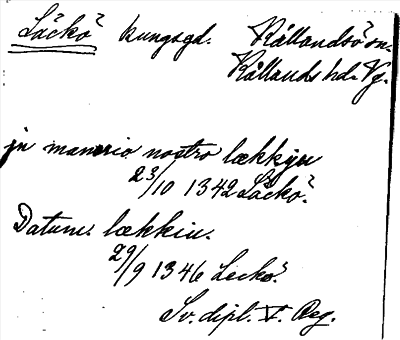 Läckö kungsgd. Kållandsö sn.
Kållands hd. Vg.
jn manerio nostro lækkyu
23/10 1342 Läckö.
Datum lækkiu.
29/9 1346 Leckö.
Sv. dipl. V. Reg.